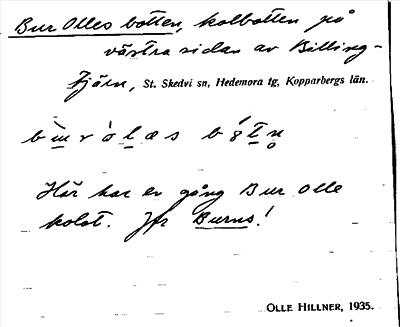 Bur Olles botten, kolbotten på
västra sidan av Billing-
tjärn, St. Skedvi sn, Hedemora tg, Kopparbergs län.
Här har en gång Bur Olle
kolat. Jfr Burns!
OLLE HILLNER, 1935.